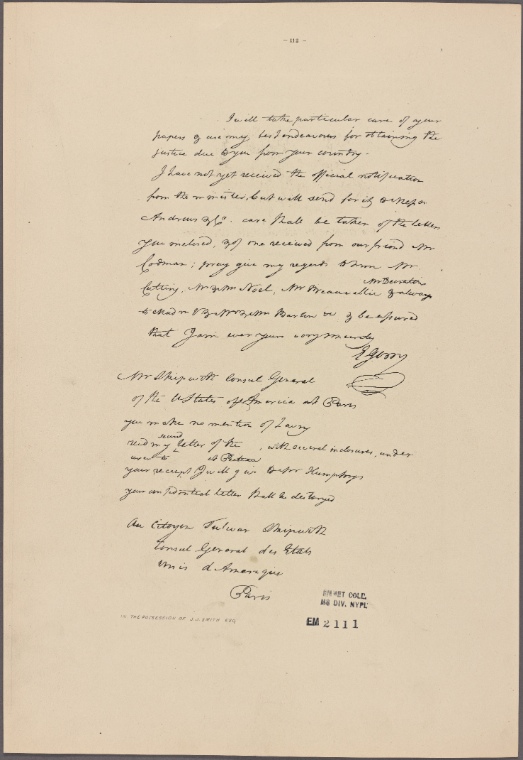 - 112 -
I will take particular care of your
papers & use my best endeavours for obtaining the
justice due to you from your country.
I have not yet received the official notification
from the minister, but will send for it, to Messrs.
Andrews & Co. care shall be taken of the letter
you enclosed, & of one received from our friend Mr
Codman; pray give my regards to him Mr
Cutting, Mr & Mrs Noel, Mr
to Madm & Mr & Mrs Barlow & be assured
that I am ever yours very sincerely
E Gerry
Mr Skipwith Consul General
of the U States of America at Paris
you make no mention of having
recd my letter of the , with several inclosures, under
your receipt I will give to Mr Humphrys
your confidential letter shall be destroyed
Au Citoyen Fulwar Skipwith
Consul General des Etats
Unis d'Amerique
Paris
IN THE POSSESSION OF J.J. SMITH ESQ.
EMMET COLL.
MS DIV. NYPL
EM 2111